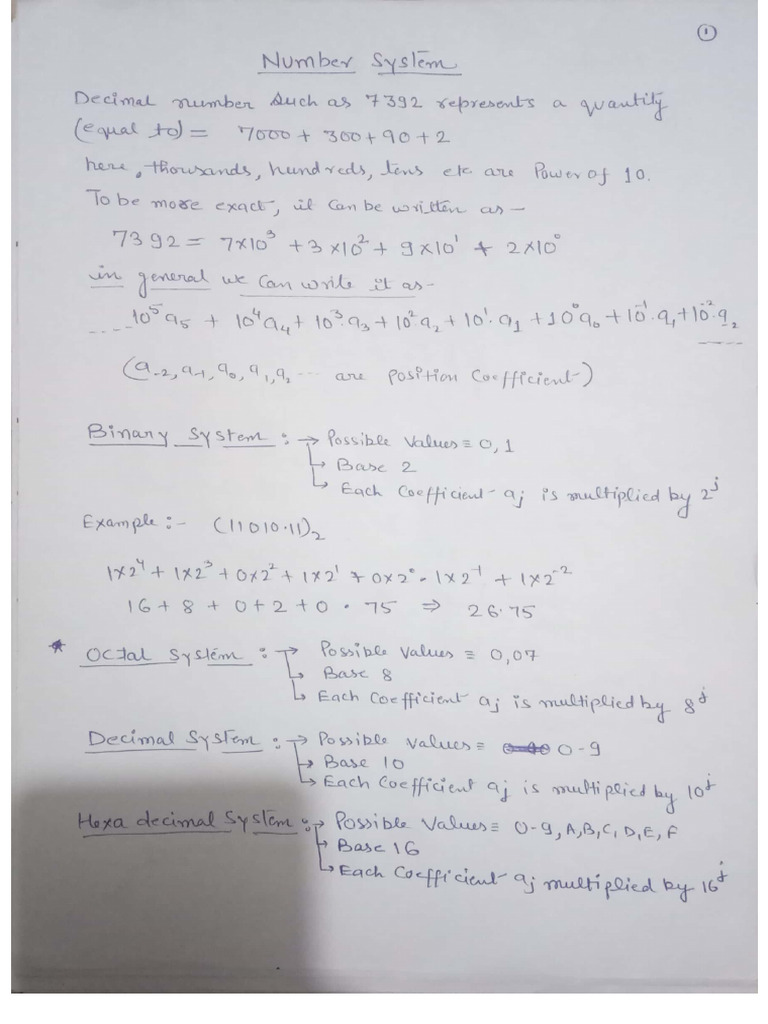 ①
Number System
Decimal number such as 7392 represents a quantity
(equal to) = 7000 + 300 + 90 + 2
here, thousands, hundreds, tens etc are Power of 10.
To be more exact, it can be written as –
7392 = 7×10³ + 3×10² + 9×10¹ + 2×10⁰
in general we can write it as –
.... 10⁵a₅ + 10⁴a₄ + 10³.a₃ + 10²a₂ + 10¹.a₁ + 10⁰a₀ + 10⁻¹.a₁ + 10⁻².a₂ ....
(a₋₂, a₋₁, a₀, a₁, a₂ ... are position coefficient)
Binary System :→ Possible Values ≡ 0, 1
↳ Base 2
↳ Each Coefficient aj is multiplied by 2ʲ
Example :- (11010.11)₂
1×2⁴ + 1×2³ + 0×2² + 1×2¹ + 0×2⁰ . 1×2⁻¹ + 1×2⁻²
16 + 8 + 0 + 2 + 0 . 75 ⇒ 26.75
* Octal System :→ Possible Values ≡ 0,07
↳ Base 8
↳ Each Coefficient aj is multiplied by 8ʲ
Decimal System :→ Possible Values ≡ 0-9
↳ Base 10
↳ Each Coefficient aj is multiplied by 10ʲ
Hexa decimal System :→ Possible Values ≡ 0-9, A, B, C, D, E, F
↳ Base 16
↳ Each Coefficient aj multiplied by 16ʲ